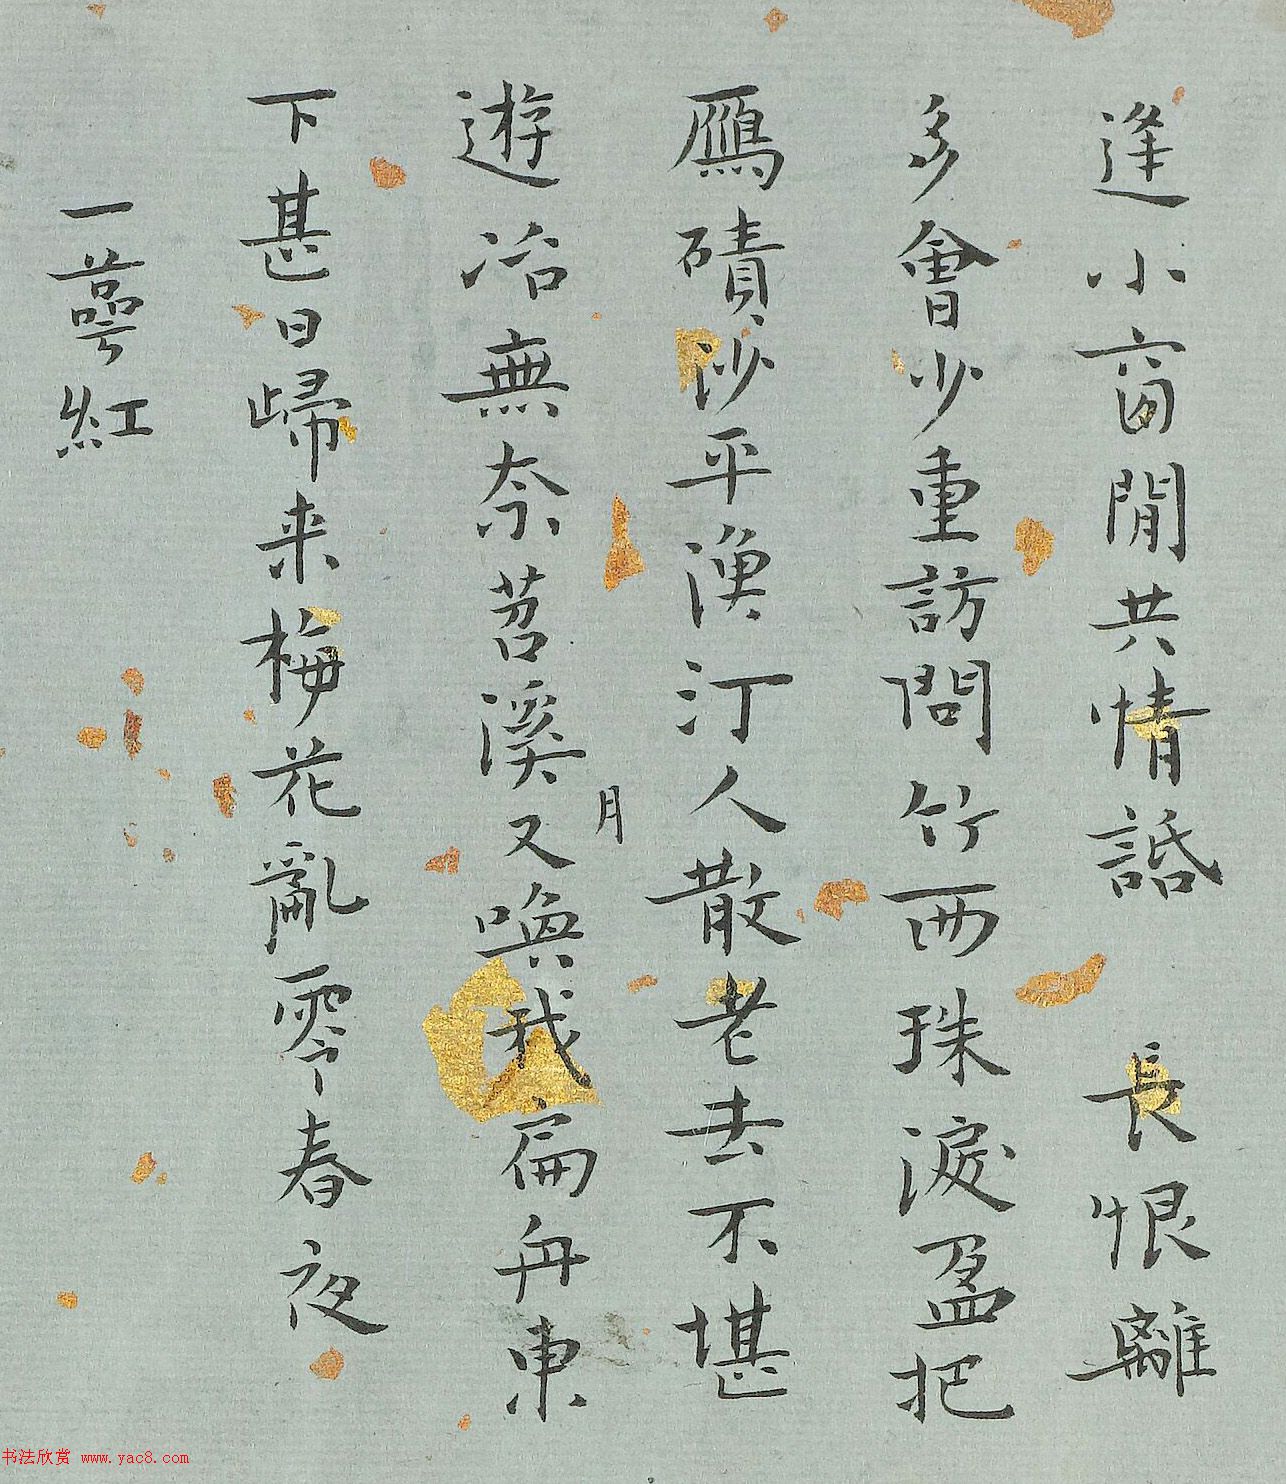 逢小窗閒共情話　長恨離
多會少重訪問竹西珠淚盈把
鴈磧沙平漁汀人散老去不堪
遊冶無奈苕溪又喚我扁舟東
月
下甚日歸来梅花亂零春夜
一蕚紅
书法欣赏 www.yac8.com